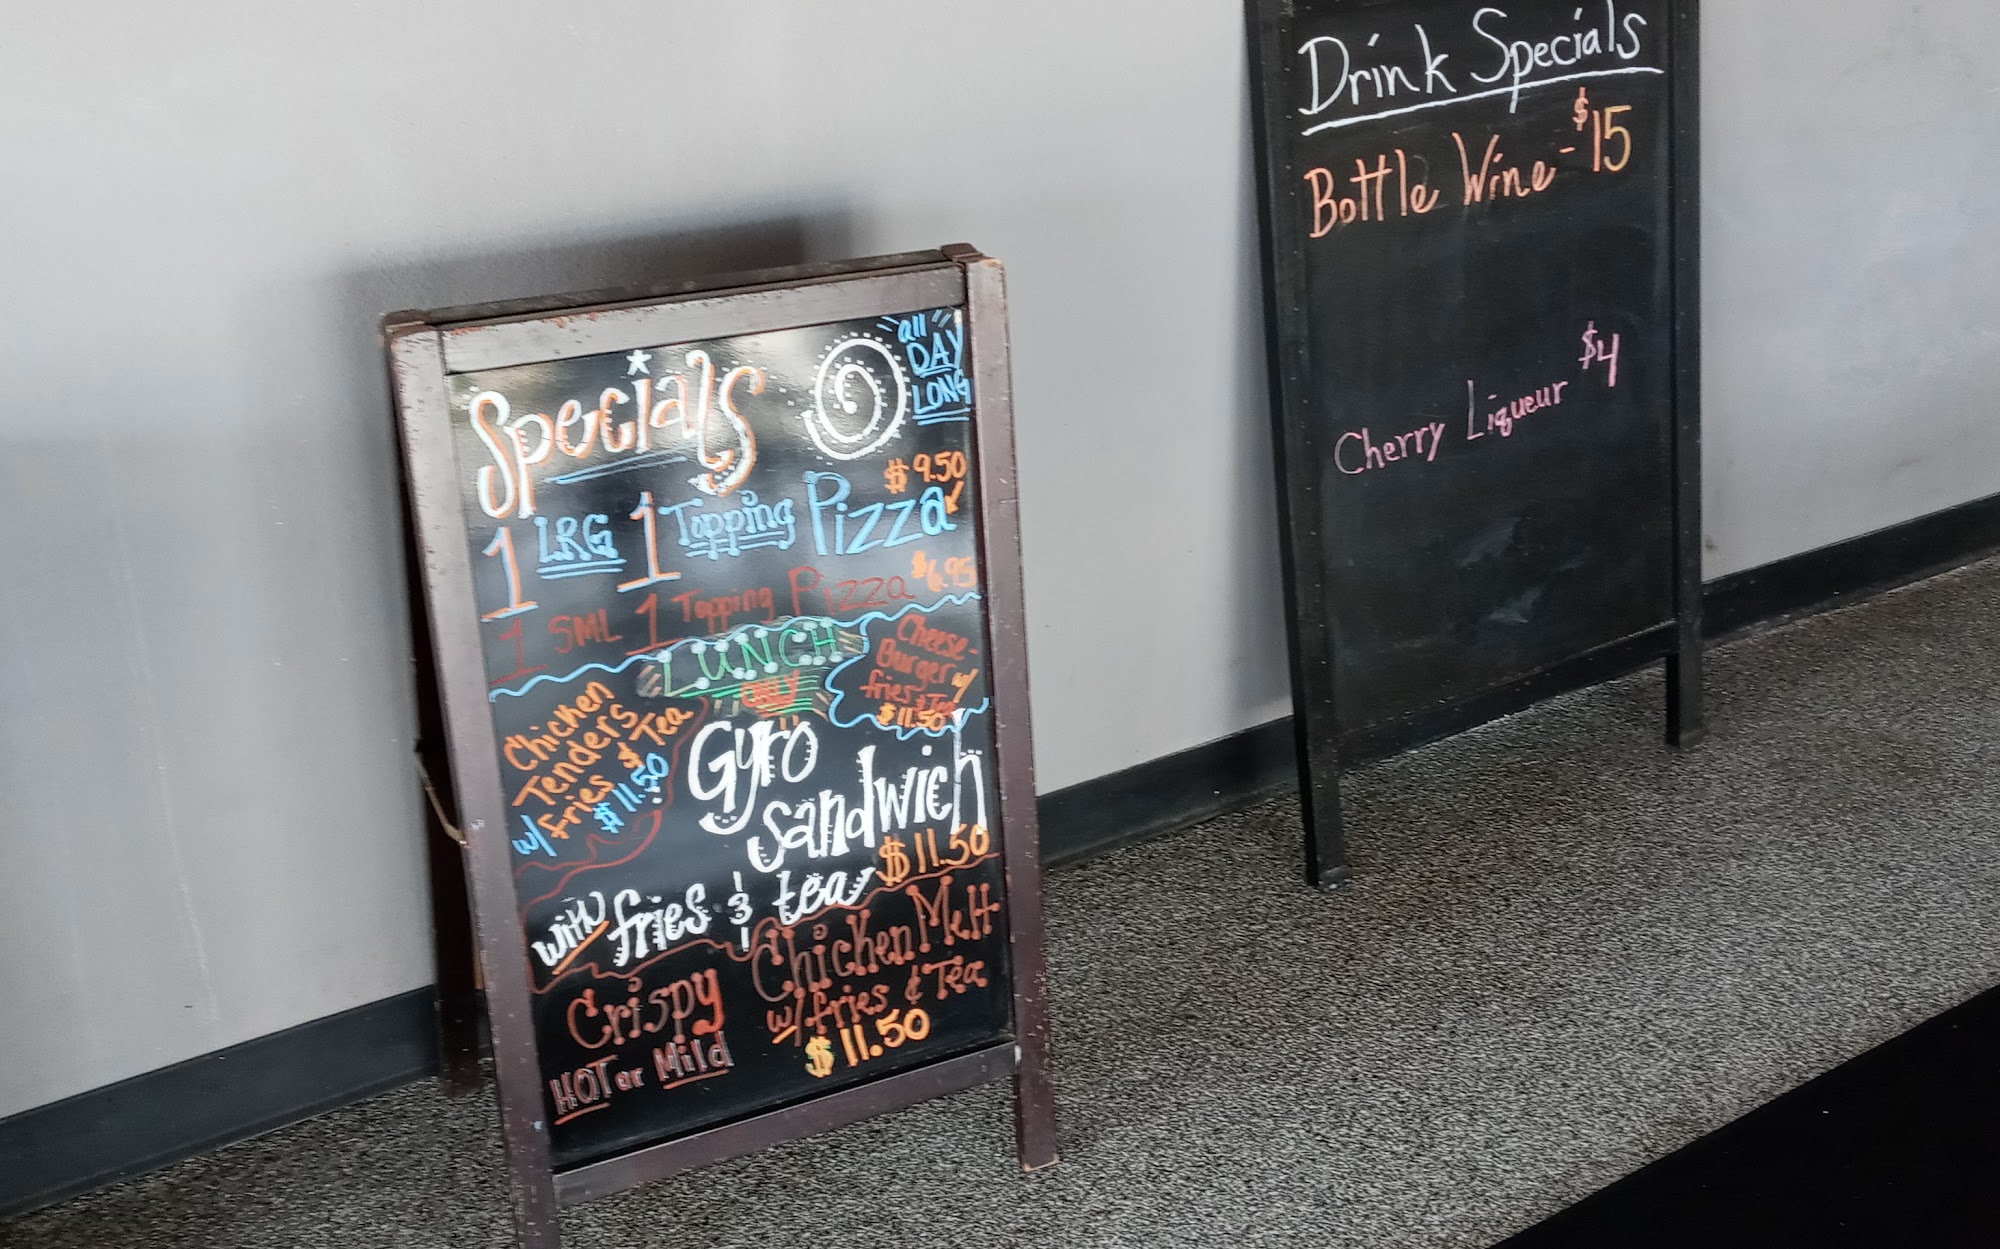 Specials
all
DAY
LONG
$9.50
1 LRG 1 Topping Pizza
1 SML 1 Topping Pizza $6.95
LUNCH
ONLY
Chicken
Tenders
w/ fries & Tea
$11.50
Cheese-
Burger w/
fries & Tea
$11.50
Gyro
sandwich
$11.50
with fries & tea
Crispy Chicken Melt
HOT or Mild
w/ fries & Tea
$11.50
Drink Specials
Bottle Wine - $15
Cherry Liqueur $4